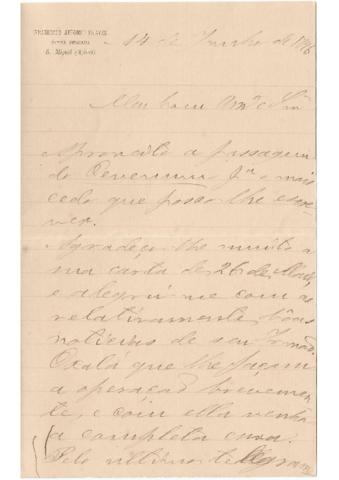 FRANCISCO AFFONSO CHAVES
S. Miguel (Açores)
14 de Junho de 1896
Meu bom Amº e Snr
Aproveito a passagem
do Jr o mais
cedo que posso lhe escre-
ver.
Agradeço lhe muito a
sua carta de 26 de Maio,
e alegrei me com as
relativamente bôas
noticias de seu Irmão.
Oxalá que lhe façam
a operação brevemen-
te, e com ella venha
a completa cura.
Pelo ultimo telegram